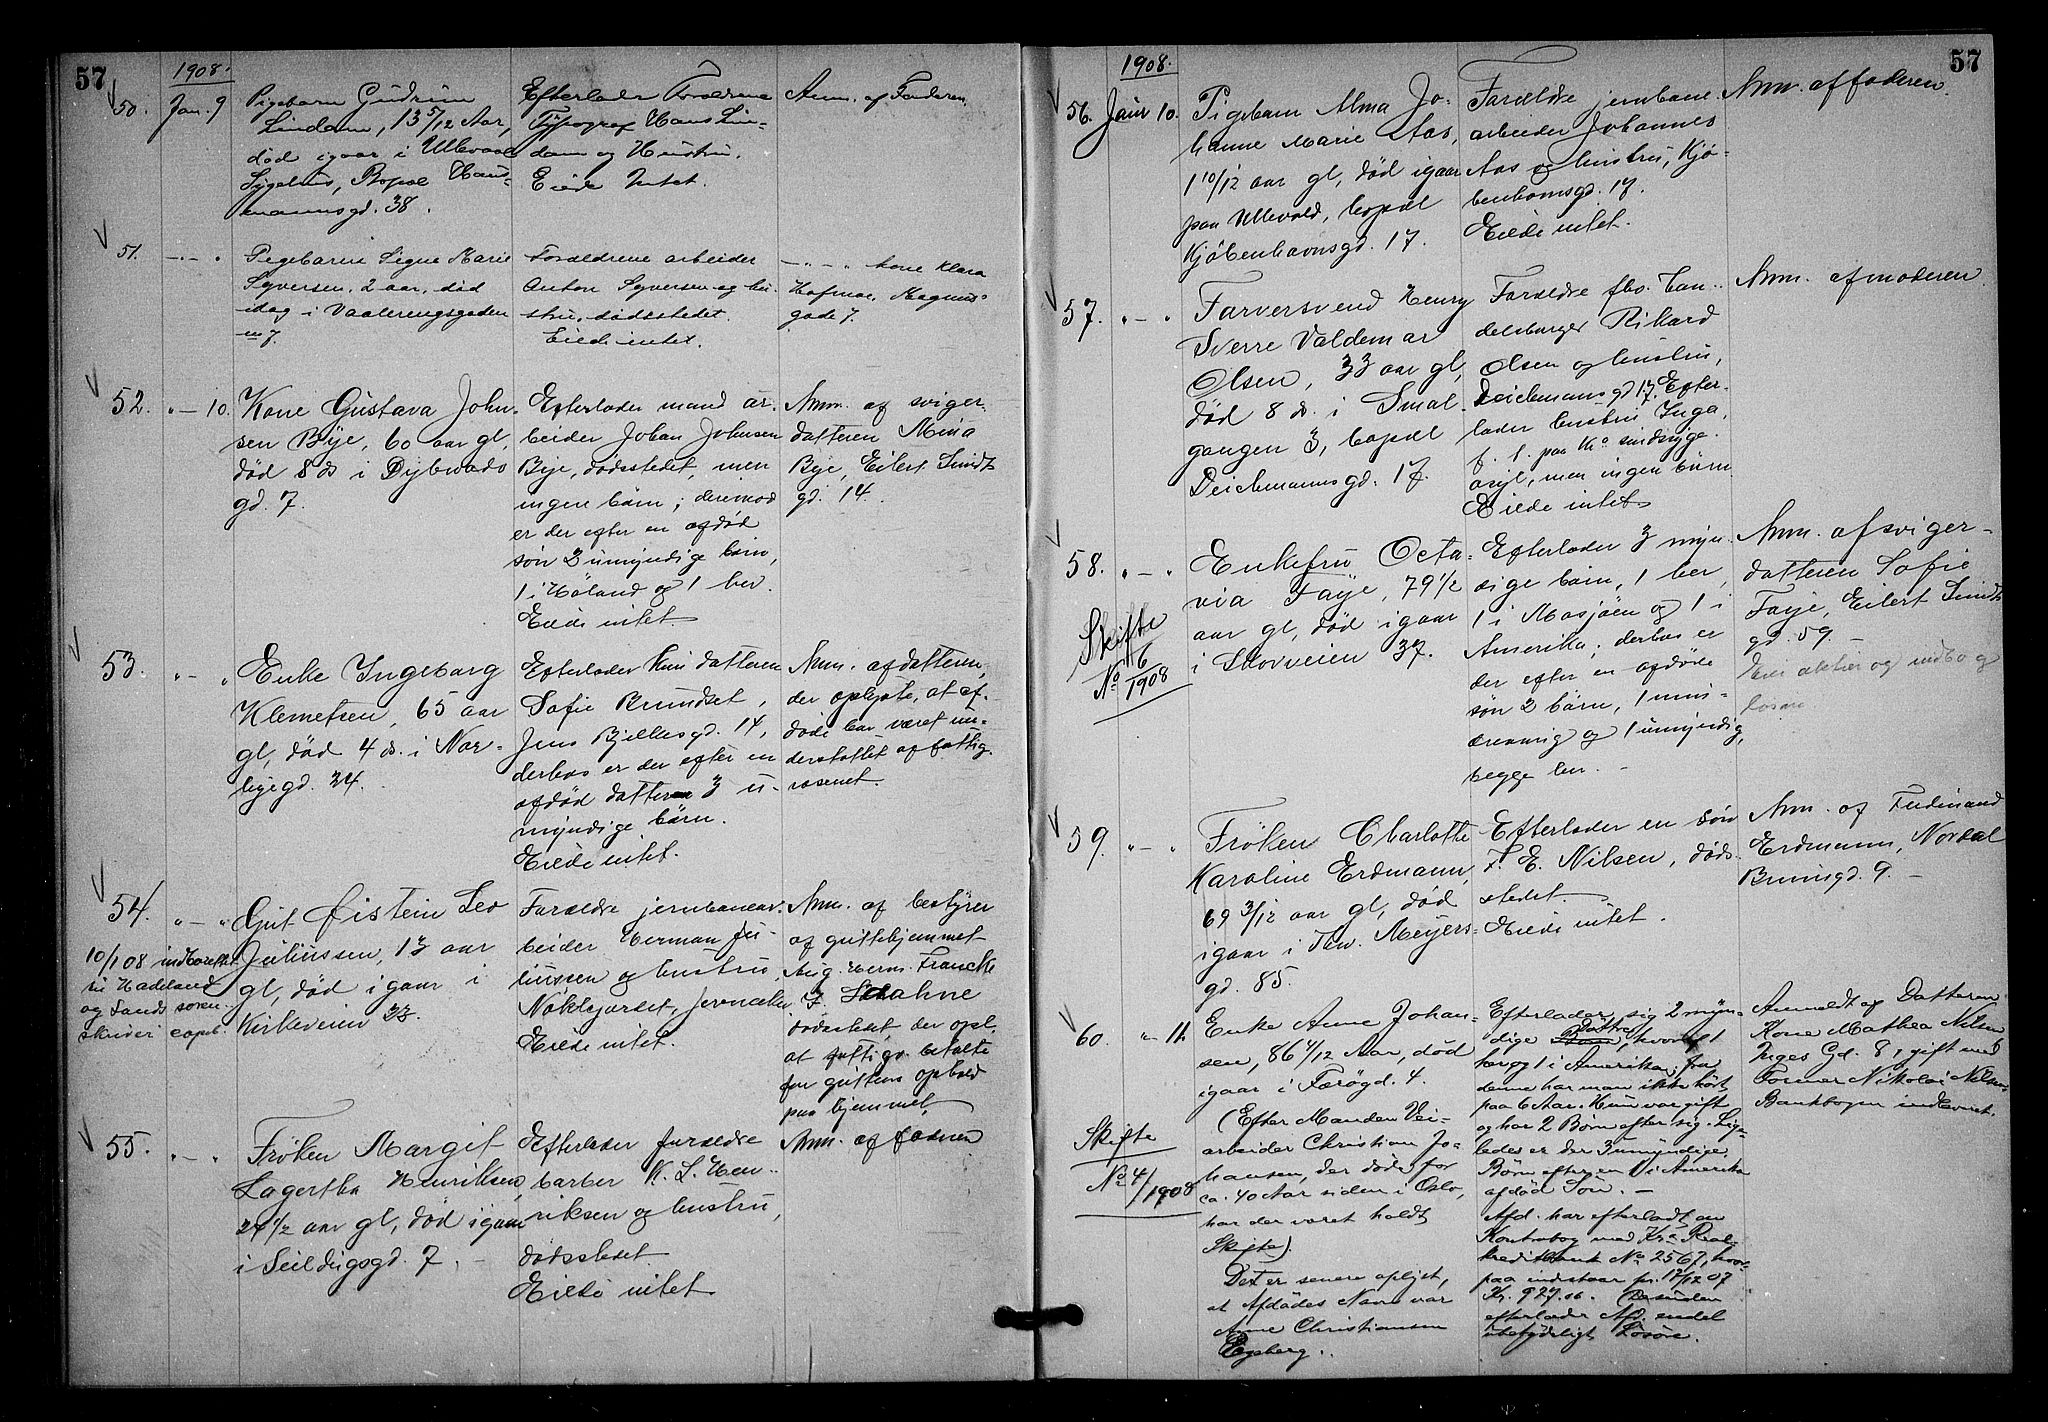 57
1908.
50.
Jan. 9
Pigebarn Gudrun
Lindam, 13 5/12 Aar,
død igaar i Ullevaal
Sygehus, Bopæl Haus-
mannsgd. 38.
Efterlader Forældrene
Typograf Hans Lin-
dam og Hustru.
Eiede Intet.
Anm. af Faderen
51.
Pigebarn Signe Marie
Syversen, 2 aar, død
idag i Vaalerengsgaden
7
Forældrene arbeider
Anton Syversen og hu-
stru, dødsstedet.
Eiede intet.
kone Klara
Hofmoe, Magnus-
gade 7.
52.
" — 10.
Kone Gustava John-
sen Bye, 60 aar gl,
død 8 ds i Dybwads
gd. 7.
Efterlader mand ar-
beider Johan Johnsen
Bye, dødsstedet, men
ingen børn; derimod
er der efter en afdød
søn 2 umyndige børn,
1 i Høland og 1 her.
Eiede intet
Anm. af sviger-
datteren Mina
Bye, Eilert Sundts
gd. 14.
53.
" — "
Enke Ingeborg
Klemetsen, 65 aar
gl, død 4 ds. i Nor-
bygd. 24.
Efterlader kun datteren
Sofie Brundset,
Jens Bjelkesgd. 14,
derhos er der efter en
afdød datter 3 u-
myndige børn.
Eiede intet.
Anm. af datteren,
der oplyste, at af-
døde har været un-
derstøttet af fattig-
væsenet.
54.
" — "
10/1 08 indberettet
til Hadeland
og Lands soren-
skriveri
Gut Øistein Leo
Juliussen, 13 aar
gl, død igaar i
Kirkeveien 23.
Forældre jernbanear-
beider Herman Ju-
liussen og hustru
Eiede intet.
Anm. af bestyrer
af guttehjemmet
Aug. Herm. Francke
dødsstedet der opl.
at betalte
for guttens ophold
paa hjemmet.
55.
" — "
Frøken Margit
Lagertha Henriksen,
24 1/2 aar gl, død igaar
i Seildugsgd. 7.
Efterlader forældre
barber K. L. Hen-
riksen og hustru,
dødsstedet
Eiede intet
Anm. af faderen
57
1908.
56.
Januar 10.
Pigebarn Alma Jo-
hanne Marie Aas,
1 10/12 aar gl, død igaar
paa Ullevold, bopæl
Kjøbenhavnsgd. 17.
Forældre jernbane-
arbeider Johannes
Aas og hustru, Kjø-
benhavnsgd. 17.
Eiede intet.
Anm. af faderen.
57.
" — "
Farversvend Henry
Sverre Valdemar
Olsen, 33 aar gl,
død 8 ds. i Smal-
gangen 3, bopæl
Deichmannsgd. 17.
Forældre fhv. han-
delsborger Rikard
Olsen og hustru,
Deichmansgd 17. Efter-
lader hustru Inga,
f. t. paa Kra sindsyge-
asyl, men ingen børn
Eiede intet
Anm. af moderen
58.
" — "
Skifte
No 6/1908
Enkefru Octa-
via Faye, 79 1/2
aar gl, død igaar
i Skovveien 37.
Efterlader 3 myn-
dige børn, 1 her,
1 i Mosjøen og 1 i
Amerika; derhos er
der efter en afdøde
søn 2 børn, 1 min-
dreaarig og 1 umyndig,
begge her.
Anm. af sviger-
datteren Sofie
Faye, Eilert Sundts
gd. 59.
aktier og indbo og
løsøre
59.
" — "
Frøken Charlotte
Karoline Erdmann,
69 3/12 aar gl, død
igaar i Thv. Meyers-
gd. 85.
Efterlader en søn
F. E. Nilsen, døds-
stedet.
Eiede intet.
Anm. af Ferdinand
Erdmann, Nordal
Brunsgd. 9.
60.
" — 11.
Skifte
No 4/1908
Enke Anne Johan-
sen, 86 4/12 Aar, død
igaar i Færøgd. 4.
(Efter Manden Vei-
arbeider Christian Jo-
hansen, der døde for
ca. 40 Aar siden i Oslo,
har der været holdt
Skifte).
Det er senere oplyst,
at Afdødes Navn var
Anne Christiansen
Egeberg.
Efterlader sig 2 myn-
dige Døttre, hvoraf 1
her og 1 i Amerika, fra
denne har man ikke hørt
paa 6 Aar. Hun var gift
og har 2 Børn efter sig. Lige-
ledes er der 3 umyndige
Børn efter en i Amerika
afdød Søn.
Afd. har efterladt en
Kontrabog med Kra Real-
kreditbank No 2567, hvor-
paa indstaar pr. 17/12 07
Kr. 927.06. Desuden
efterlader Afd. endel
ubetydeligt Løsøre.
Anmeldt af Datteren
Kone Mathea Nilsen
Inges Gd. 8, gift med
Former Nikolai Nilsen.
Bankbogen indleveret.